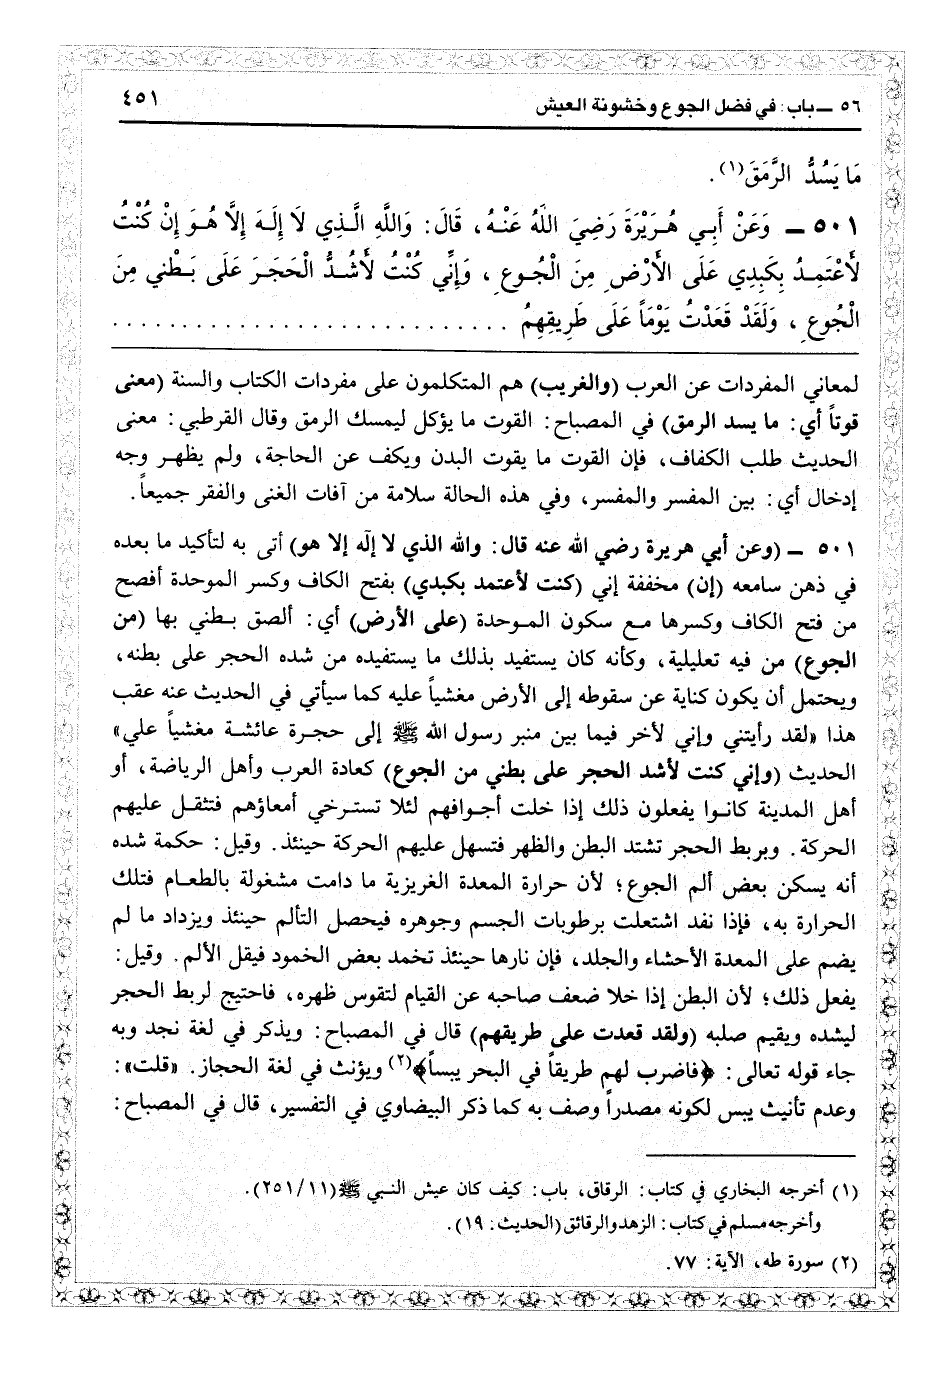 ٥٦ ــ باب: في فضل الجوع وخشونة العيش
٤٥١
مَا يَسُدُّ الرَّمَقَ(١).
٥٠١ ــ وَعَنْ أَبِي هُرَيْرَةَ رَضِيَ اللهُ عَنْهُ، قَالَ: وَاللَّهِ الَّذِي لَا إِلَهَ إِلَّا هُوَ إِنْ كُنْتُ
لَأَعْتَمِدُ بِكَبِدِي عَلَى الأَرْضِ مِنَ الْجُوعِ، وَإِنِّي كُنْتُ لأَشُدُّ الْحَجَرَ عَلَى بَطْنِي مِنَ
الْجُوعِ، وَلَقَدْ قَعَدْتُ يَوْمَاً عَلَى طَرِيقِهِمُ ..............................
لمعاني المفردات عن العرب (والغريب) هم المتكلمون على مفردات الكتاب والسنة (معنى
قوتاً أي: ما يسد الرمق) في المصباح: القوت ما يؤكل ليمسك الرمق وقال القرطبي: معنى
الحديث طلب الكفاف، فإن القوت ما يقوت البدن ويكف عن الحاجة، ولم يظهر وجه
إدخال أي: بين المفسر والمفسر، وفي هذه الحالة سلامة من آفات الغنى والفقر جميعاً.
٥٠١ ــ (وعن أبي هريرة رضي الله عنه قال: والله الذي لا إلٰه إلا هو) أتى به لتأكيد ما بعده
في ذهن سامعه (إن) مخففة إني (كنت لأعتمد بكبدي) بفتح الكاف وكسر الموحدة أفصح
من فتح الكاف وكسرها مع سكون الموحدة (على الأرض) أي: ألصق بطني بها (من
الجوع) من فيه تعليلية، وكأنه كان يستفيد بذلك ما يستفيده من شده الحجر على بطنه،
ويحتمل أن يكون كناية عن سقوطه إلى الأرض مغشياً عليه كما سيأتي في الحديث عنه عقب
هذا «لقد رأيتني وإني لأخر فيما بين منبر رسول الله ﷺ إلى حجرة عائشة مغشياً علي»
الحديث (وإني كنت لأشد الحجر على بطني من الجوع) كعادة العرب وأهل الرياضة، أو
أهل المدينة كانوا يفعلون ذلك إذا خلت أجوافهم لئلا تسترخي أمعاؤهم فتثقل عليهم
الحركة. وبربط الحجر تشتد البطن والظهر فتسهل عليهم الحركة حينئذ. وقيل: حكمة شده
أنه يسكن بعض ألم الجوع؛ لأن حرارة المعدة الغريزية ما دامت مشغولة بالطعام فتلك
الحرارة به، فإذا نفد اشتعلت برطوبات الجسم وجوهره فيحصل التألم حينئذ ويزداد ما لم
يضم على المعدة الأحشاء والجلد، فإن نارها حينئذ تخمد بعض الخمود فيقل الألم. وقيل:
يفعل ذلك؛ لأن البطن إذا خلا ضعف صاحبه عن القيام لتقوس ظهره، فاحتيج لربط الحجر
ليشده ويقيم صلبه (ولقد قعدت على طريقهم) قال في المصباح: ويذكر في لغة نجد وبه
جاء قوله تعالى: ﴿فاضرب لهم طريقاً في البحر يبساً﴾(٢) ويؤنث في لغة الحجاز. «قلت»:
وعدم تأنيث يبس لكونه مصدراً وصف به كما ذكر البيضاوي في التفسير، قال في المصباح:
(١) أخرجه البخاري في كتاب: الرقاق، باب: كيف كان عيش النبي ﷺ (٢٥١/١١).
وأخرجه مسلم في كتاب: الزهد والرقائق (الحديث: ١٩).
(٢) سورة طه، الآية: ٧٧.